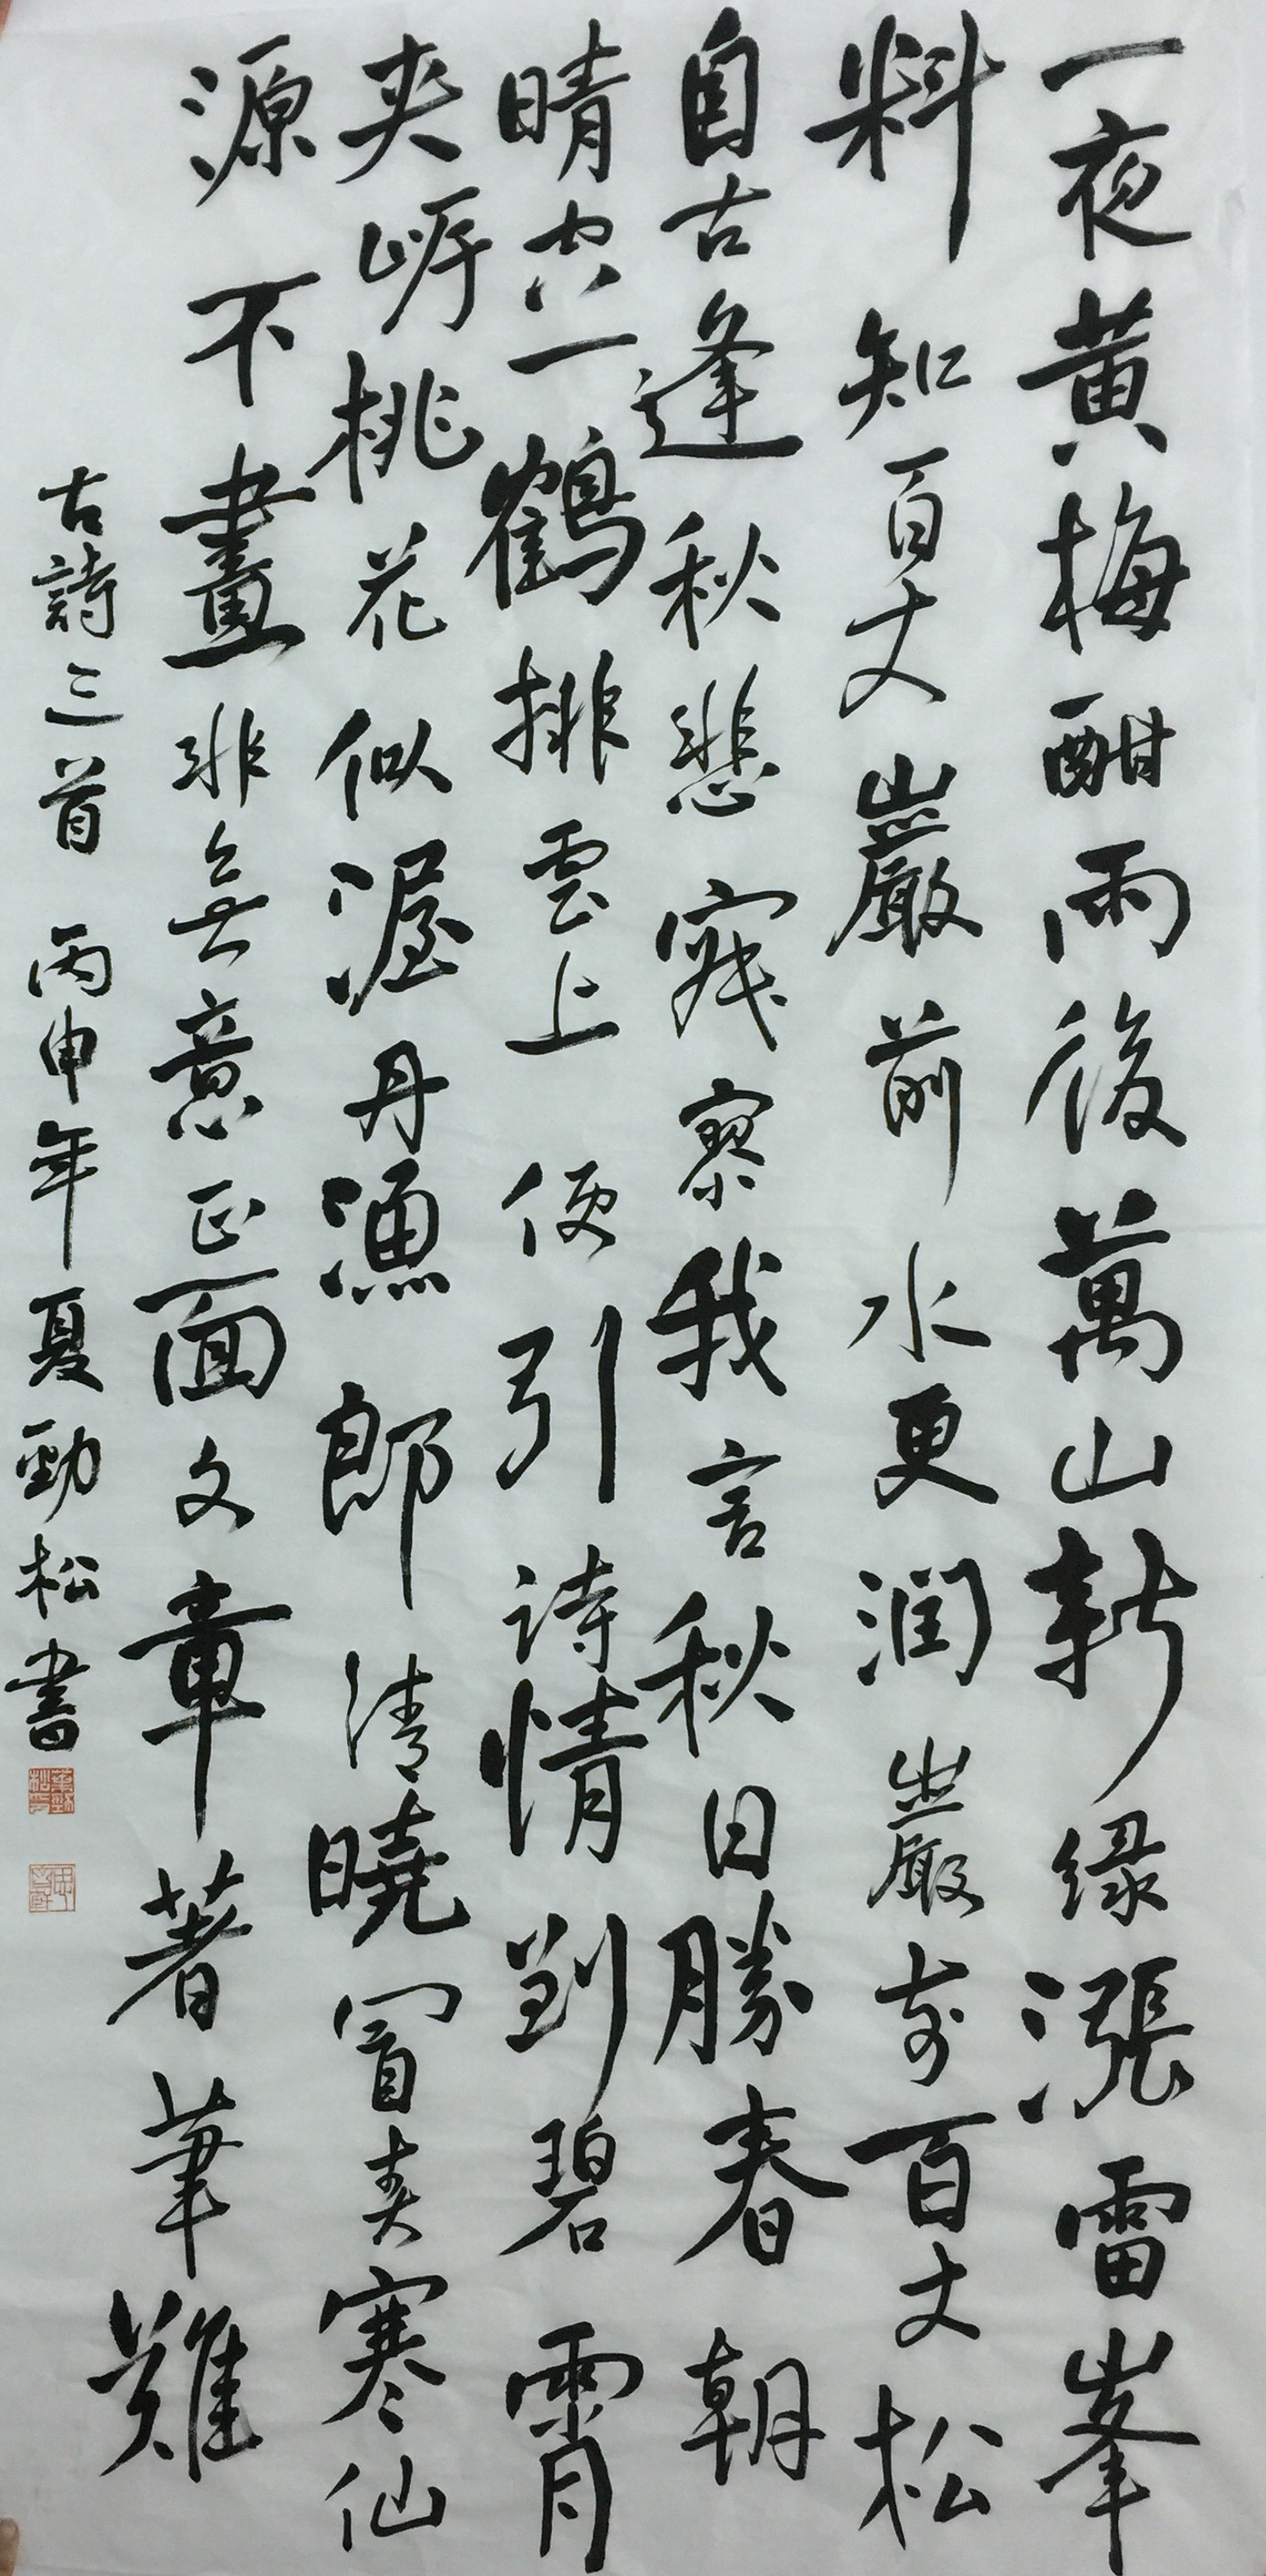 一夜黃梅酣雨後萬山新綠漲雷峯
料知百丈巖前水更潤巖前百丈松
自古逢秋悲寂寥我言秋日勝春朝
晴空一鶴排雲上便引詩情到碧霄
夾岸桃花似渥丹漁郎清曉冒春寒仙
源不畫非無意正面文章著筆難
古詩三首 丙申年夏勁松書